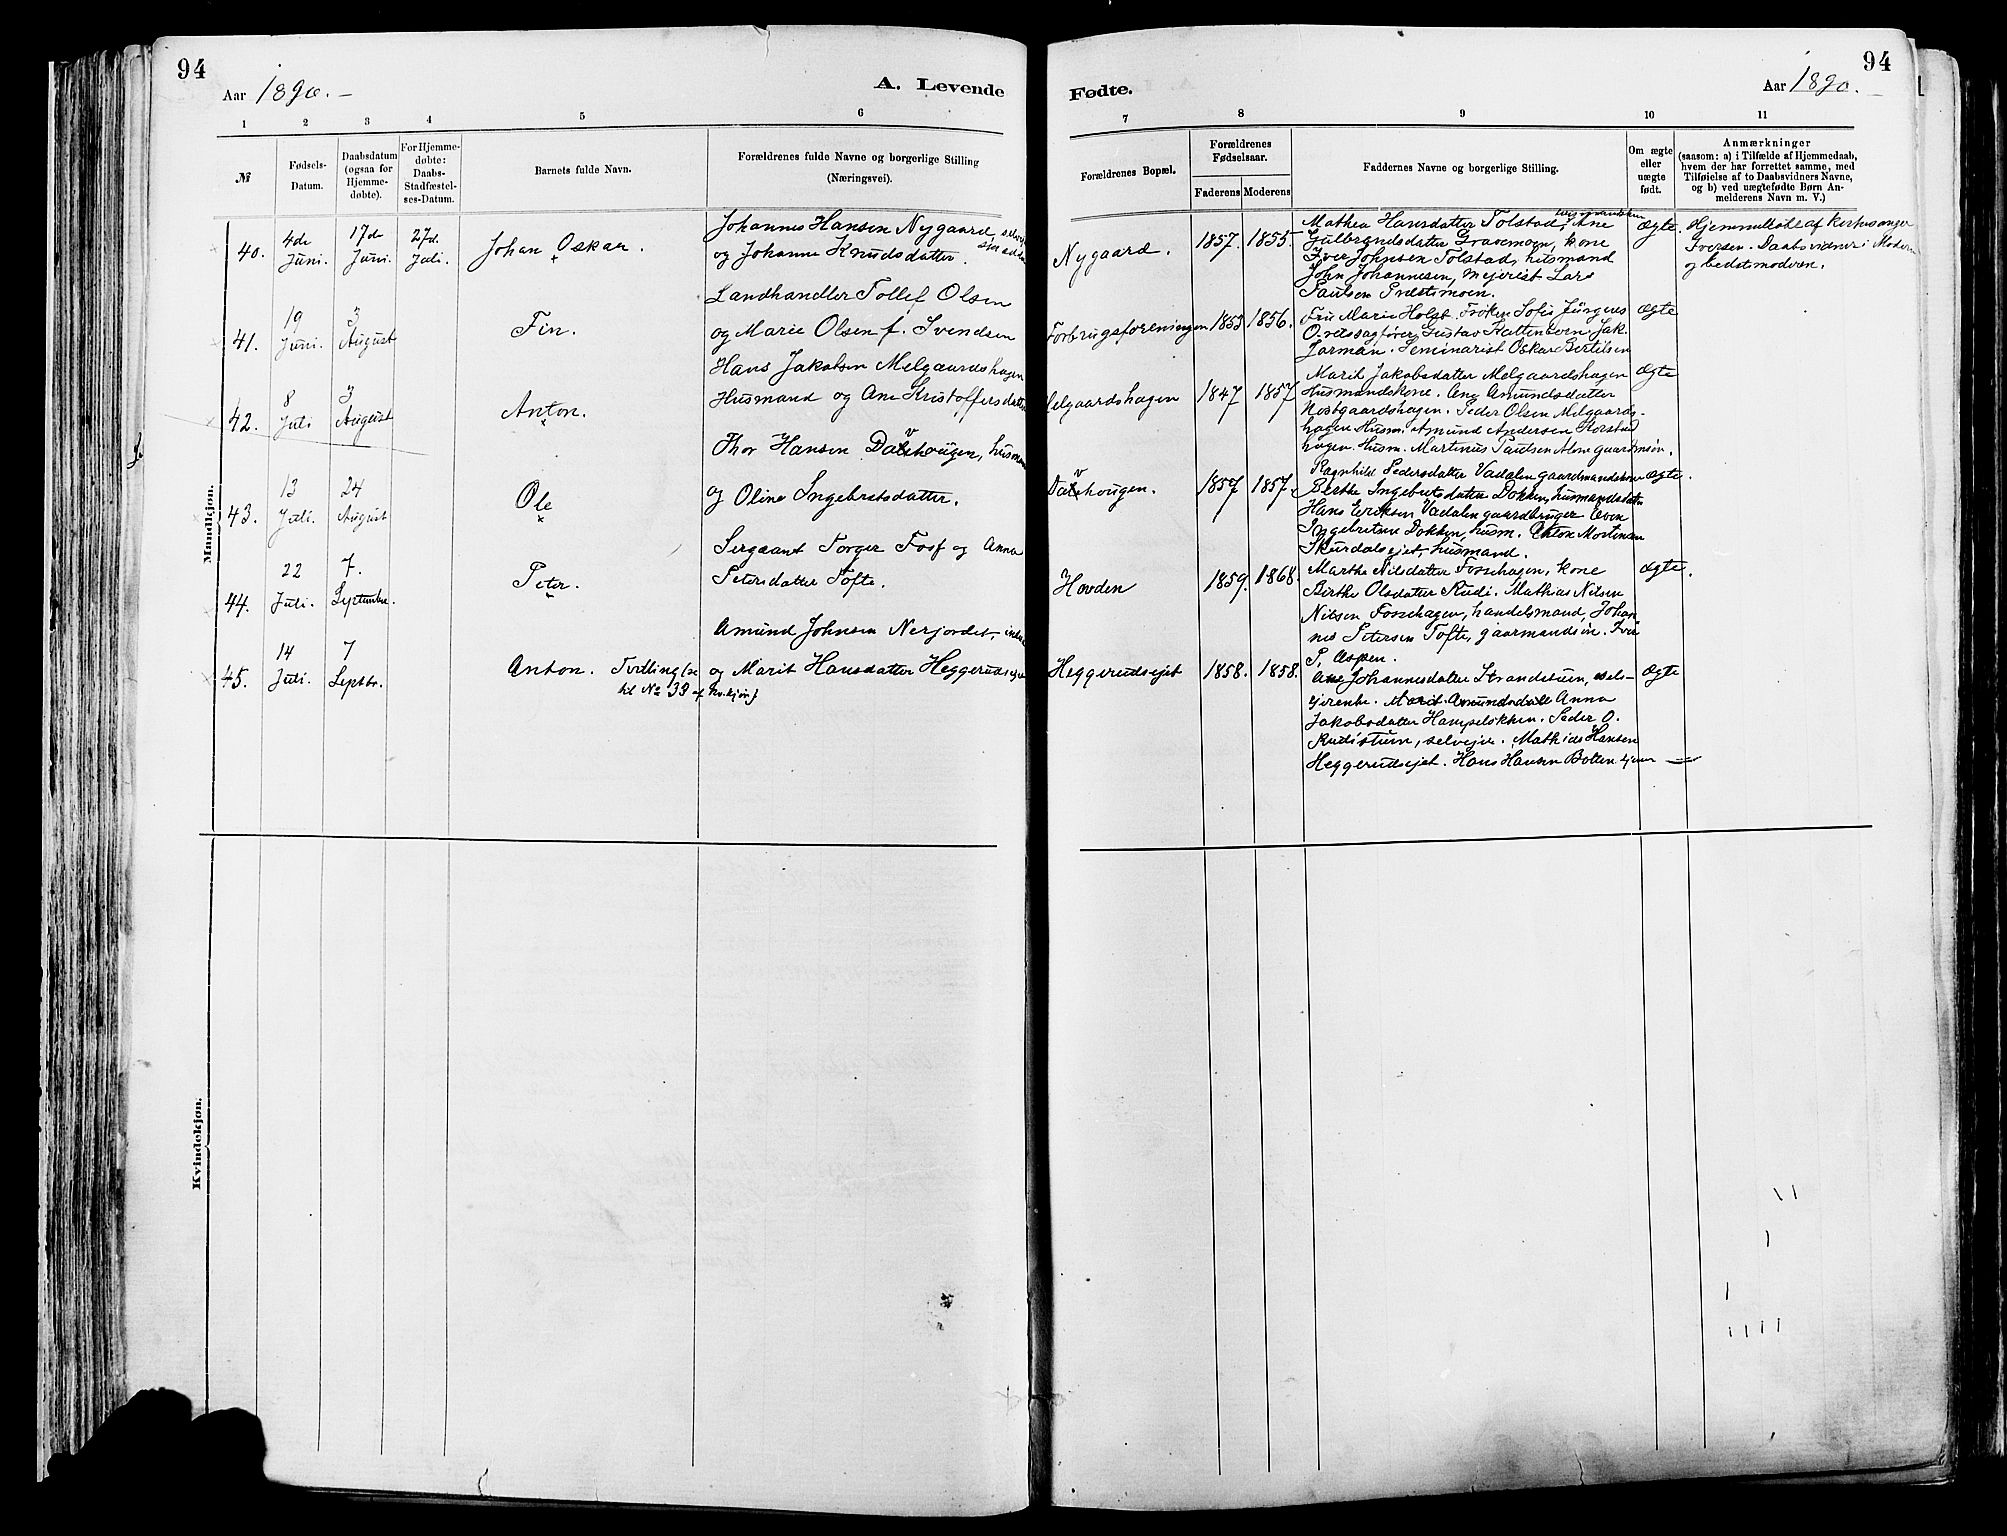 94
Aar 1890.
A. Levende
1 2 3 4 5 6
№
Fødsels-Datum.
Daabsdatum (ogsaa for Hjemmedøbte).
For Hjemmedøbte: Daabs-Stadfæstelses-Datum.
Barnets fulde Navn.
Forældrenes fulde Navne og borgerlige Stilling
(Næringsvei).
Mandkjøn.
40. 4de Juni. 17de Juni. 27d. Juli. Johan Oskar
Johannes Hansen Nygaard
og Johanne Knudsdatter.
41. 19 Juni. 3 August Fin.
Landhandler Tollef Olsen
og Marie Olsen f. Svendsen
42. 8 Juli 3 August Anton.
Hans Jakobsen Melgaardshagen
Husmand og Ane Kristoffersdatter
43. 13 Juli. 24 August Ole
Thor Hansen Dalehougen, husmand
og Oline Ingebretsdatter.
44. 22 Juli. 7. September. Peter.
Sergeant Torger Fosf og Anna
Petersdatter Tofte.
45. 14 Juli. 7 Septbr. Anton. Tvilling
til No 39 af kv.kjøn
Amund Johnsen Nerjordet,
og Marit Hansdatter Heggerudsejet
Kvindekjøn.
94
Fødte.
Aar 1890.
7 8 9 10 11
Forældrenes Bopæl.
Forældrenes Fødselsaar.
Faderens Moderens
Faddernes Navne og borgerlige Stilling.
Om ægte eller uægte født.
Anmærkninger
(saasom: a) i Tilfælde af Hjemmedaab,
hvem der har forrettet samme, med
Tilføielse af to Daabsvidners Navne,
og b) ved uægtefødte Børn An-
melderens Navn m. V.)
Nygaard. 1857. 1855.
Mathea Hansdatter Tolstad, Ane
Gulbrandsdatter Gravemoen, kone
Iver Johnsen Tolstad, husmand
John Johannesen, Mejerist Lars
Paulsen Præstmoen.
ægte.
Hjemmedøbt af kirkesanger
Iversen. Daabsvidner: Moderen
og bedstmoderen.
Forbrugsforeningen 1853 1856.
Fru Marie Holst. Frøken Sofie Jürgens
Overssagfører Gustav Kattenborn. Jak.
Jorman. Seminarist Oskar Bertilsen
ægte
Melgaardshagen 1847 1857
Marit Jakobsdatter Melgaardshagen
Husmandskone. Ane Amundsdatter
Nostgaardshagen. Peder Olsen Melgaards-
hagen Husm. Amund Andersen Korstad
hagen Husm. Martinus Paulsen
ægte
Dalehougen. 1857 1857.
Ragnhild Pedersdatter Vadalen gaardmandskone
Berthe Ingebretsdatter Dokken, husmandsdatter
Hans Eriksen Vadalen gaardbruger Even
Ingebretsen Dokken, husm. Anton Mortinsen
Skurdalsejet, husmand.
ægte.
Hovden 1859. 1868.
Marthe Nilsdatter Fossehagen, kone
Birthe Olsdatter Rudi. Mathias Nilsen
Nilsen Fossehagen, handelsmand, Johan-
nes Petersen Tofte, gaarmandsøn. Iver
P. Aspen.
ægte.
Heggerudsejet 1858. 1858.
Ane Johannesdatter Strandstuen, sels-
tjerenhe. Marit Amundsdatt Anna
Jakobsdatter Hampeløkken. Peder O.
Rudistuen, selvejer. Mathias Hansen
Heggerudsejet. Hans Hansen Botten
ægte